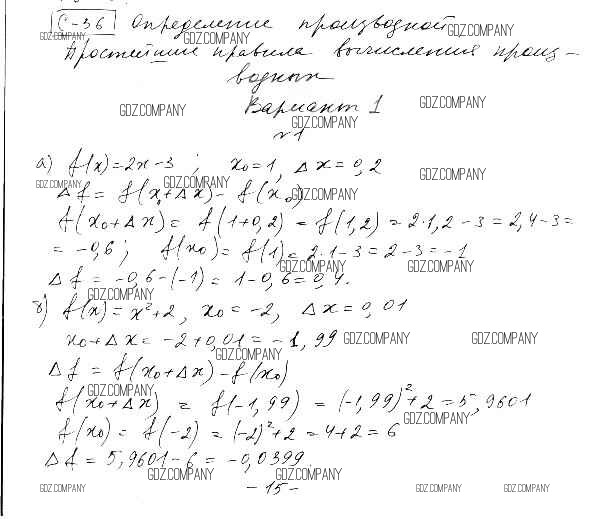 С-36 Определение производной
GDZ.COMPANY GDZ.COMPANY GDZ.COMPANY
Простейшие правила вычисления произ-
водных
GDZ.COMPANY Вариант 1 GDZ.COMPANY
GDZ.COMPANY
№1
а) f(x)=2x-3 ; x₀=1, Δx=0,2
GDZ.COMPANY GDZ.COMPANY GDZ.COMPANY
Δf = f(x₀+Δx) - f(x₀)
GDZ.COMPANY
f(x₀+Δx) = f(1+0,2) = f(1,2) = 2·1,2-3 = 2,4-3 =
= -0,6 ; f(x₀) = f(1) = 2·1-3 = 2-3 = -1
GDZ.COMPANY GDZ.COMPANY
Δf = -0,6-(-1) = 1-0,6 = 0,4.
GDZ.COMPANY
б) f(x) = x²+2, x₀ = -2, Δx = 0,01
x₀+Δx = -2+0,01 = -1,99 GDZ.COMPANY GDZ.COMPANY
GDZ.COMPANY
Δf = f(x₀+Δx) - f(x₀)
GDZ.COMPANY
f(x₀+Δx) = f(-1,99) = (-1,99)²+2 = 5,9601
GDZ.COMPANY
f(x₀) = f(-2) = (-2)²+2 = 4+2 = 6
Δf = 5,9601-6 = -0,0399
GDZ.COMPANY GDZ.COMPANY
GDZ.COMPANY -15- GDZ.COMPANY GDZ.COMPANY